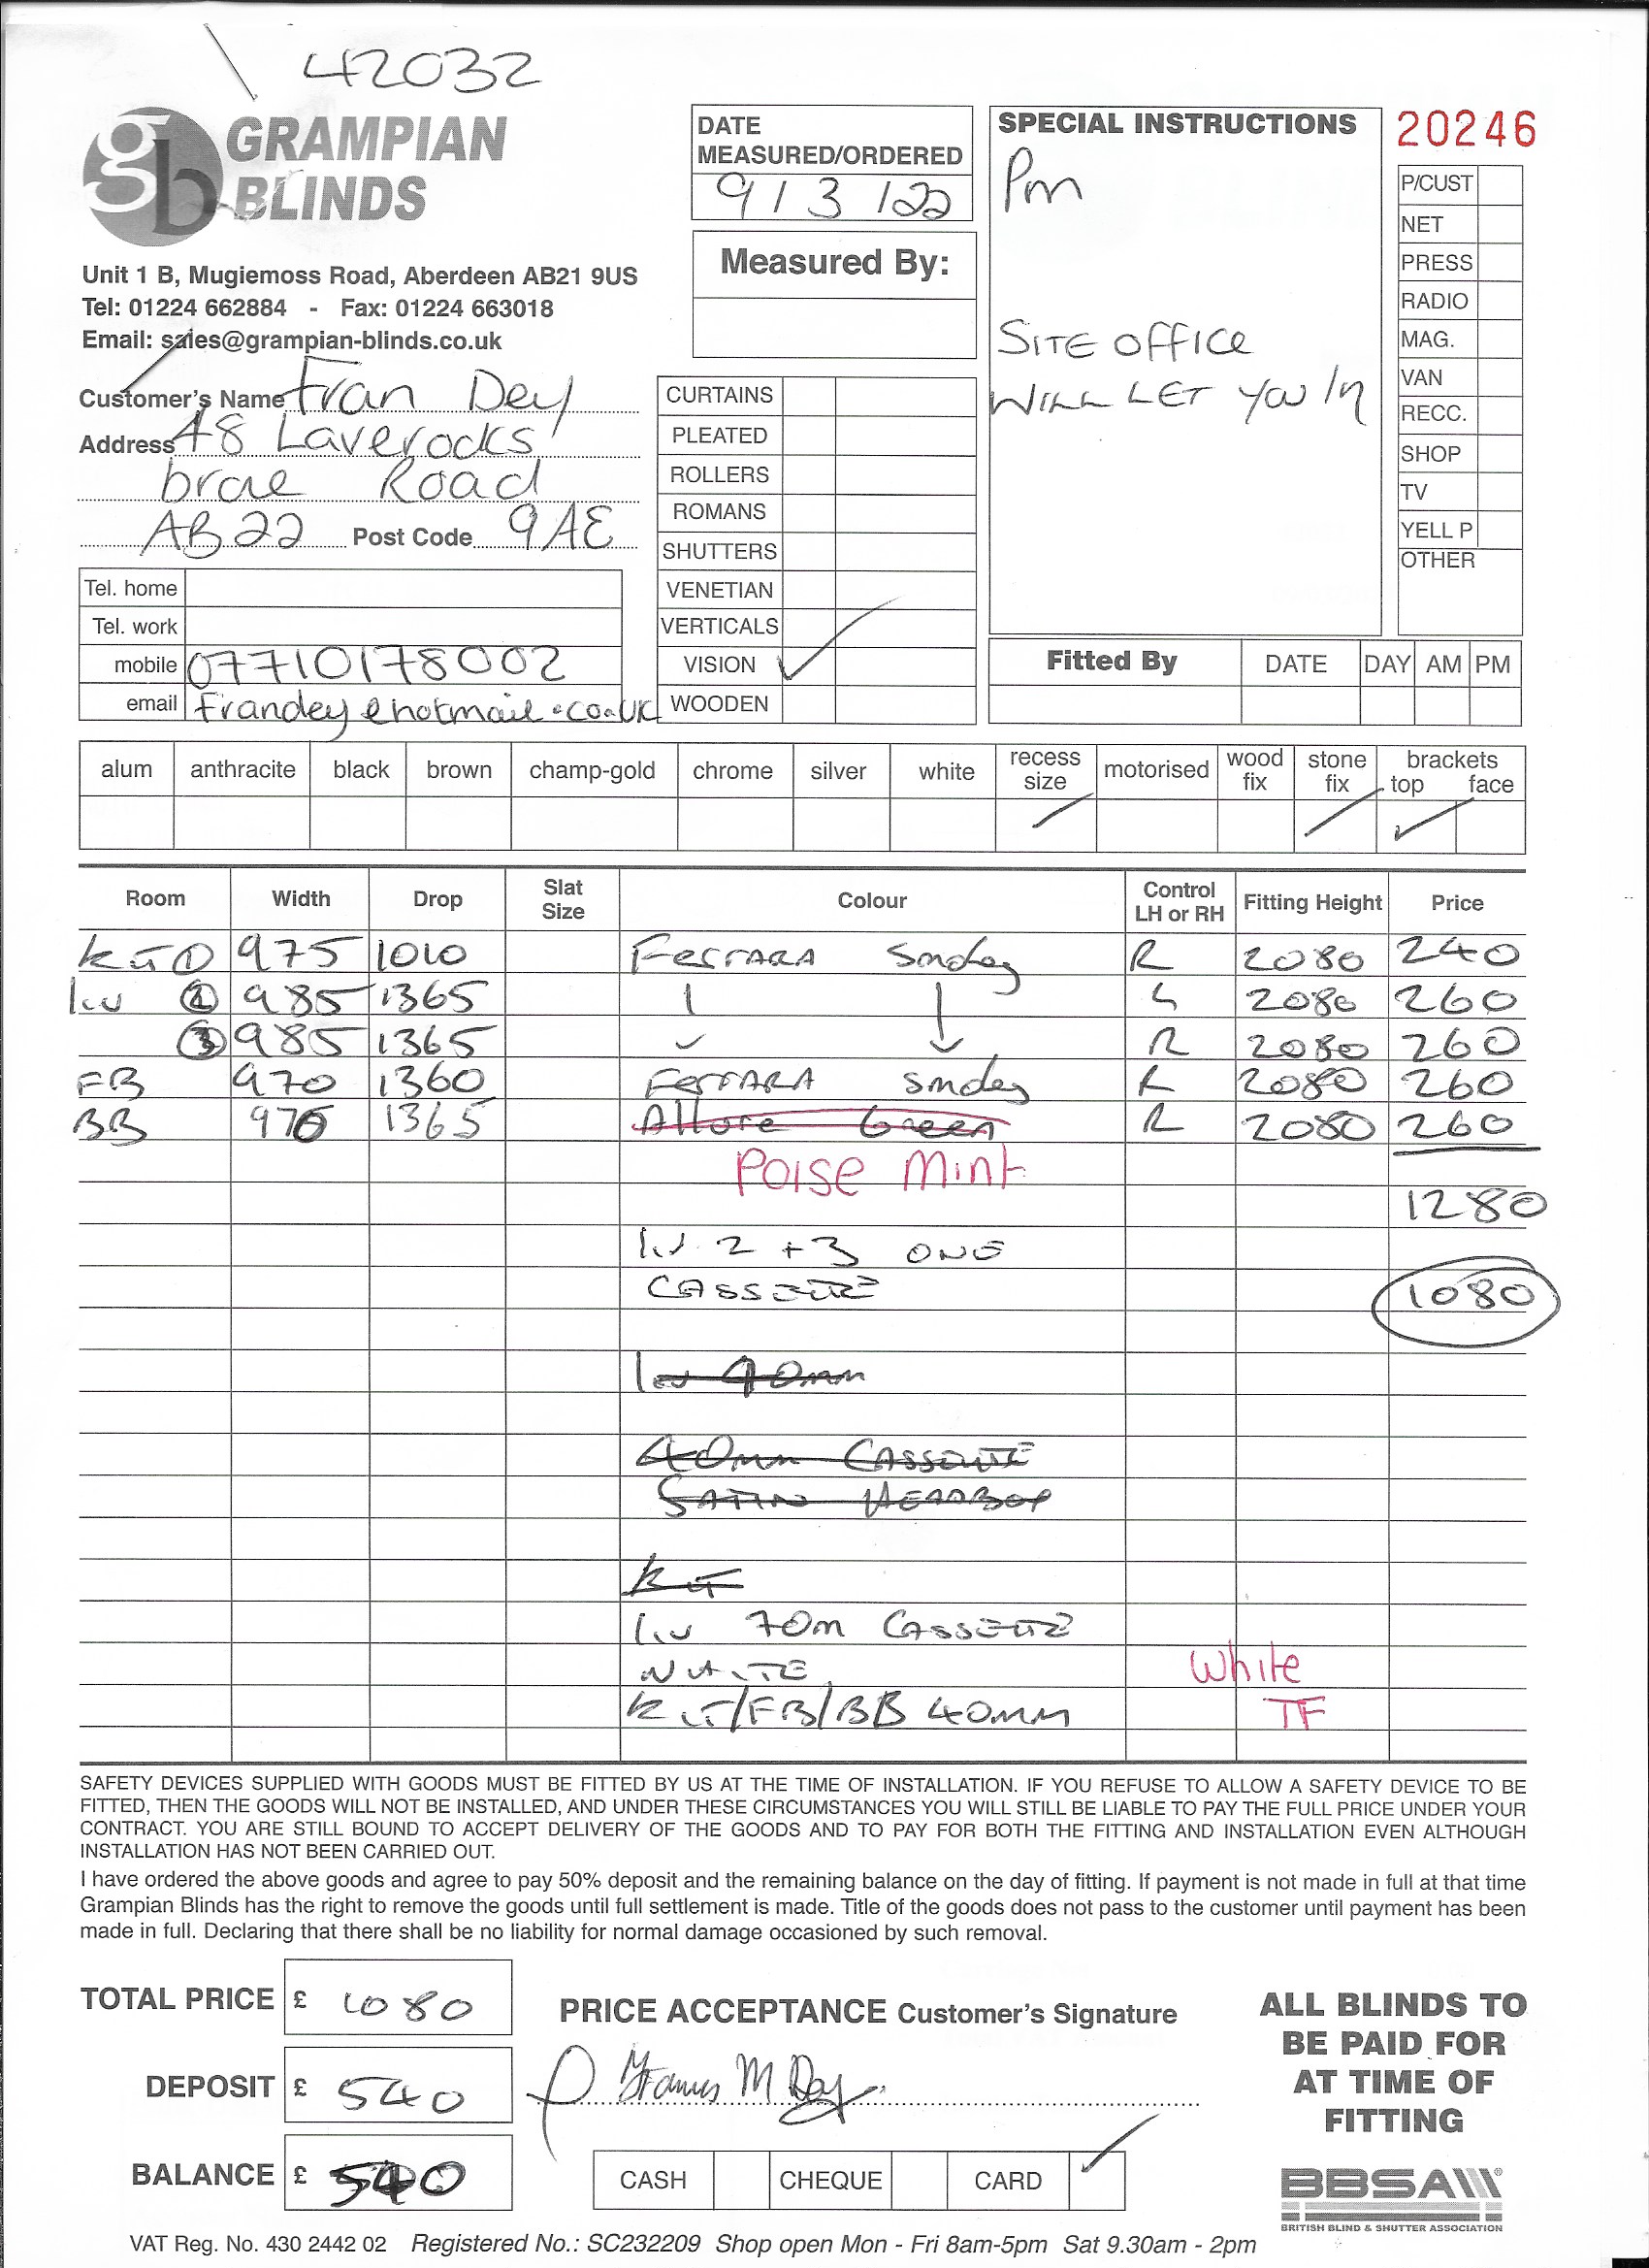 42032
GRAMPIAN
BLINDS
Unit 1 B, Mugiemoss Road, Aberdeen AB21 9US
Tel: 01224 662884 - Fax: 01224 663018
Email: sales@grampian-blinds.co.uk
Customer's Name Fran Dey
Address 48 Laverocks
brae Road
AB22 Post Code 9AE
Tel. home
Tel. work
mobile 07710178002
email frandey@hotmail.co.uk
DATE
MEASURED/ORDERED
9/3/22
Measured By:
CURTAINS
PLEATED
ROLLERS
ROMANS
SHUTTERS
VENETIAN
VERTICALS
VISION ✓
WOODEN
SPECIAL INSTRUCTIONS
Pm
SITE OFFICE
WILL LET YOU IN
20246
P/CUST
NET
PRESS
RADIO
MAG.
VAN
RECC.
SHOP
TV
YELL P
OTHER
Fitted By DATE DAY AM PM
alum anthracite black brown champ-gold chrome silver white recess size motorised wood fix stone fix brackets top face
Room Width Drop Slat Size Colour Control LH or RH Fitting Height Price
KIT 1 975 1010 FERRARA Smokey R 2080 240
liv 2 985 1365 L 2080 260
3 985 1365 R 2080 260
FB 970 1360 FERRARA Smokey R 2080 260
BB 976 1365 Allure Green R 2080 260
Poise Mint
1280
liv 2 + 3 ONE
CASSETTE
1080
liv 40mm
40mm CASSETTE
SATIN HEADBOX
KIT
liv 70m CASSETTE
WHITE White
KIT/FB/BB 40MM TF
SAFETY DEVICES SUPPLIED WITH GOODS MUST BE FITTED BY US AT THE TIME OF INSTALLATION. IF YOU REFUSE TO ALLOW A SAFETY DEVICE TO BE
FITTED, THEN THE GOODS WILL NOT BE INSTALLED, AND UNDER THESE CIRCUMSTANCES YOU WILL STILL BE LIABLE TO PAY THE FULL PRICE UNDER YOUR
CONTRACT. YOU ARE STILL BOUND TO ACCEPT DELIVERY OF THE GOODS AND TO PAY FOR BOTH THE FITTING AND INSTALLATION EVEN ALTHOUGH
INSTALLATION HAS NOT BEEN CARRIED OUT.
I have ordered the above goods and agree to pay 50% deposit and the remaining balance on the day of fitting. If payment is not made in full at that time
Grampian Blinds has the right to remove the goods until full settlement is made. Title of the goods does not pass to the customer until payment has been
made in full. Declaring that there shall be no liability for normal damage occasioned by such removal.
TOTAL PRICE £ 1080
DEPOSIT £ 540
BALANCE £ 540
PRICE ACCEPTANCE Customer's Signature
Frances M Dey
CASH CHEQUE CARD ✓
ALL BLINDS TO
BE PAID FOR
AT TIME OF
FITTING
BBSA
BRITISH BLIND & SHUTTER ASSOCIATION
VAT Reg. No. 430 2442 02 Registered No.: SC232209 Shop open Mon - Fri 8am-5pm Sat 9.30am - 2pm